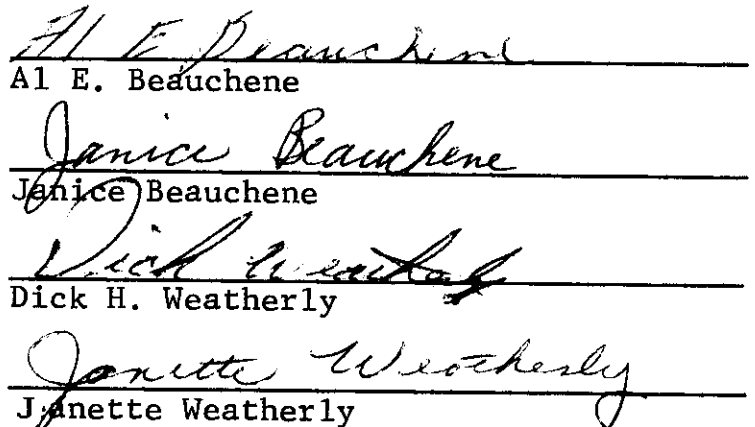 Al E Beauchene
Al E. Beauchene
Janice Beauchene
Janice Beauchene
Dick Weatherly
Dick H. Weatherly
Janette Weatherly
Janette Weatherly